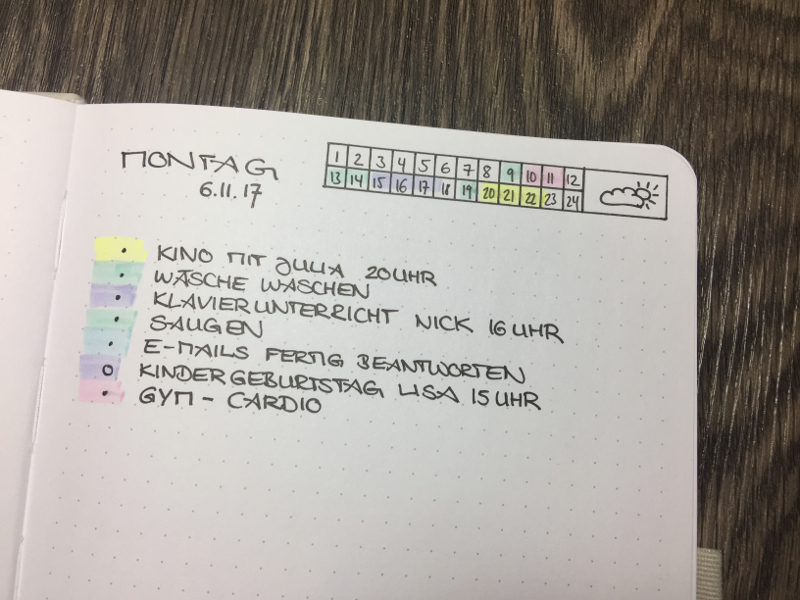 MONTAG
6.11.17
1 2 3 4 5 6 7 8 9 10 11 12
13 14 15 16 17 18 19 20 21 22 23 24
KINO MIT JULIA 20 UHR
WÄSCHE WASCHEN
KLAVIERUNTERRICHT NICK 16 UHR
SAUGEN
E-MAILS FERTIG BEANTWORTEN
KINDERGEBURTSTAG LISA 15 UHR
GYM - CARDIO